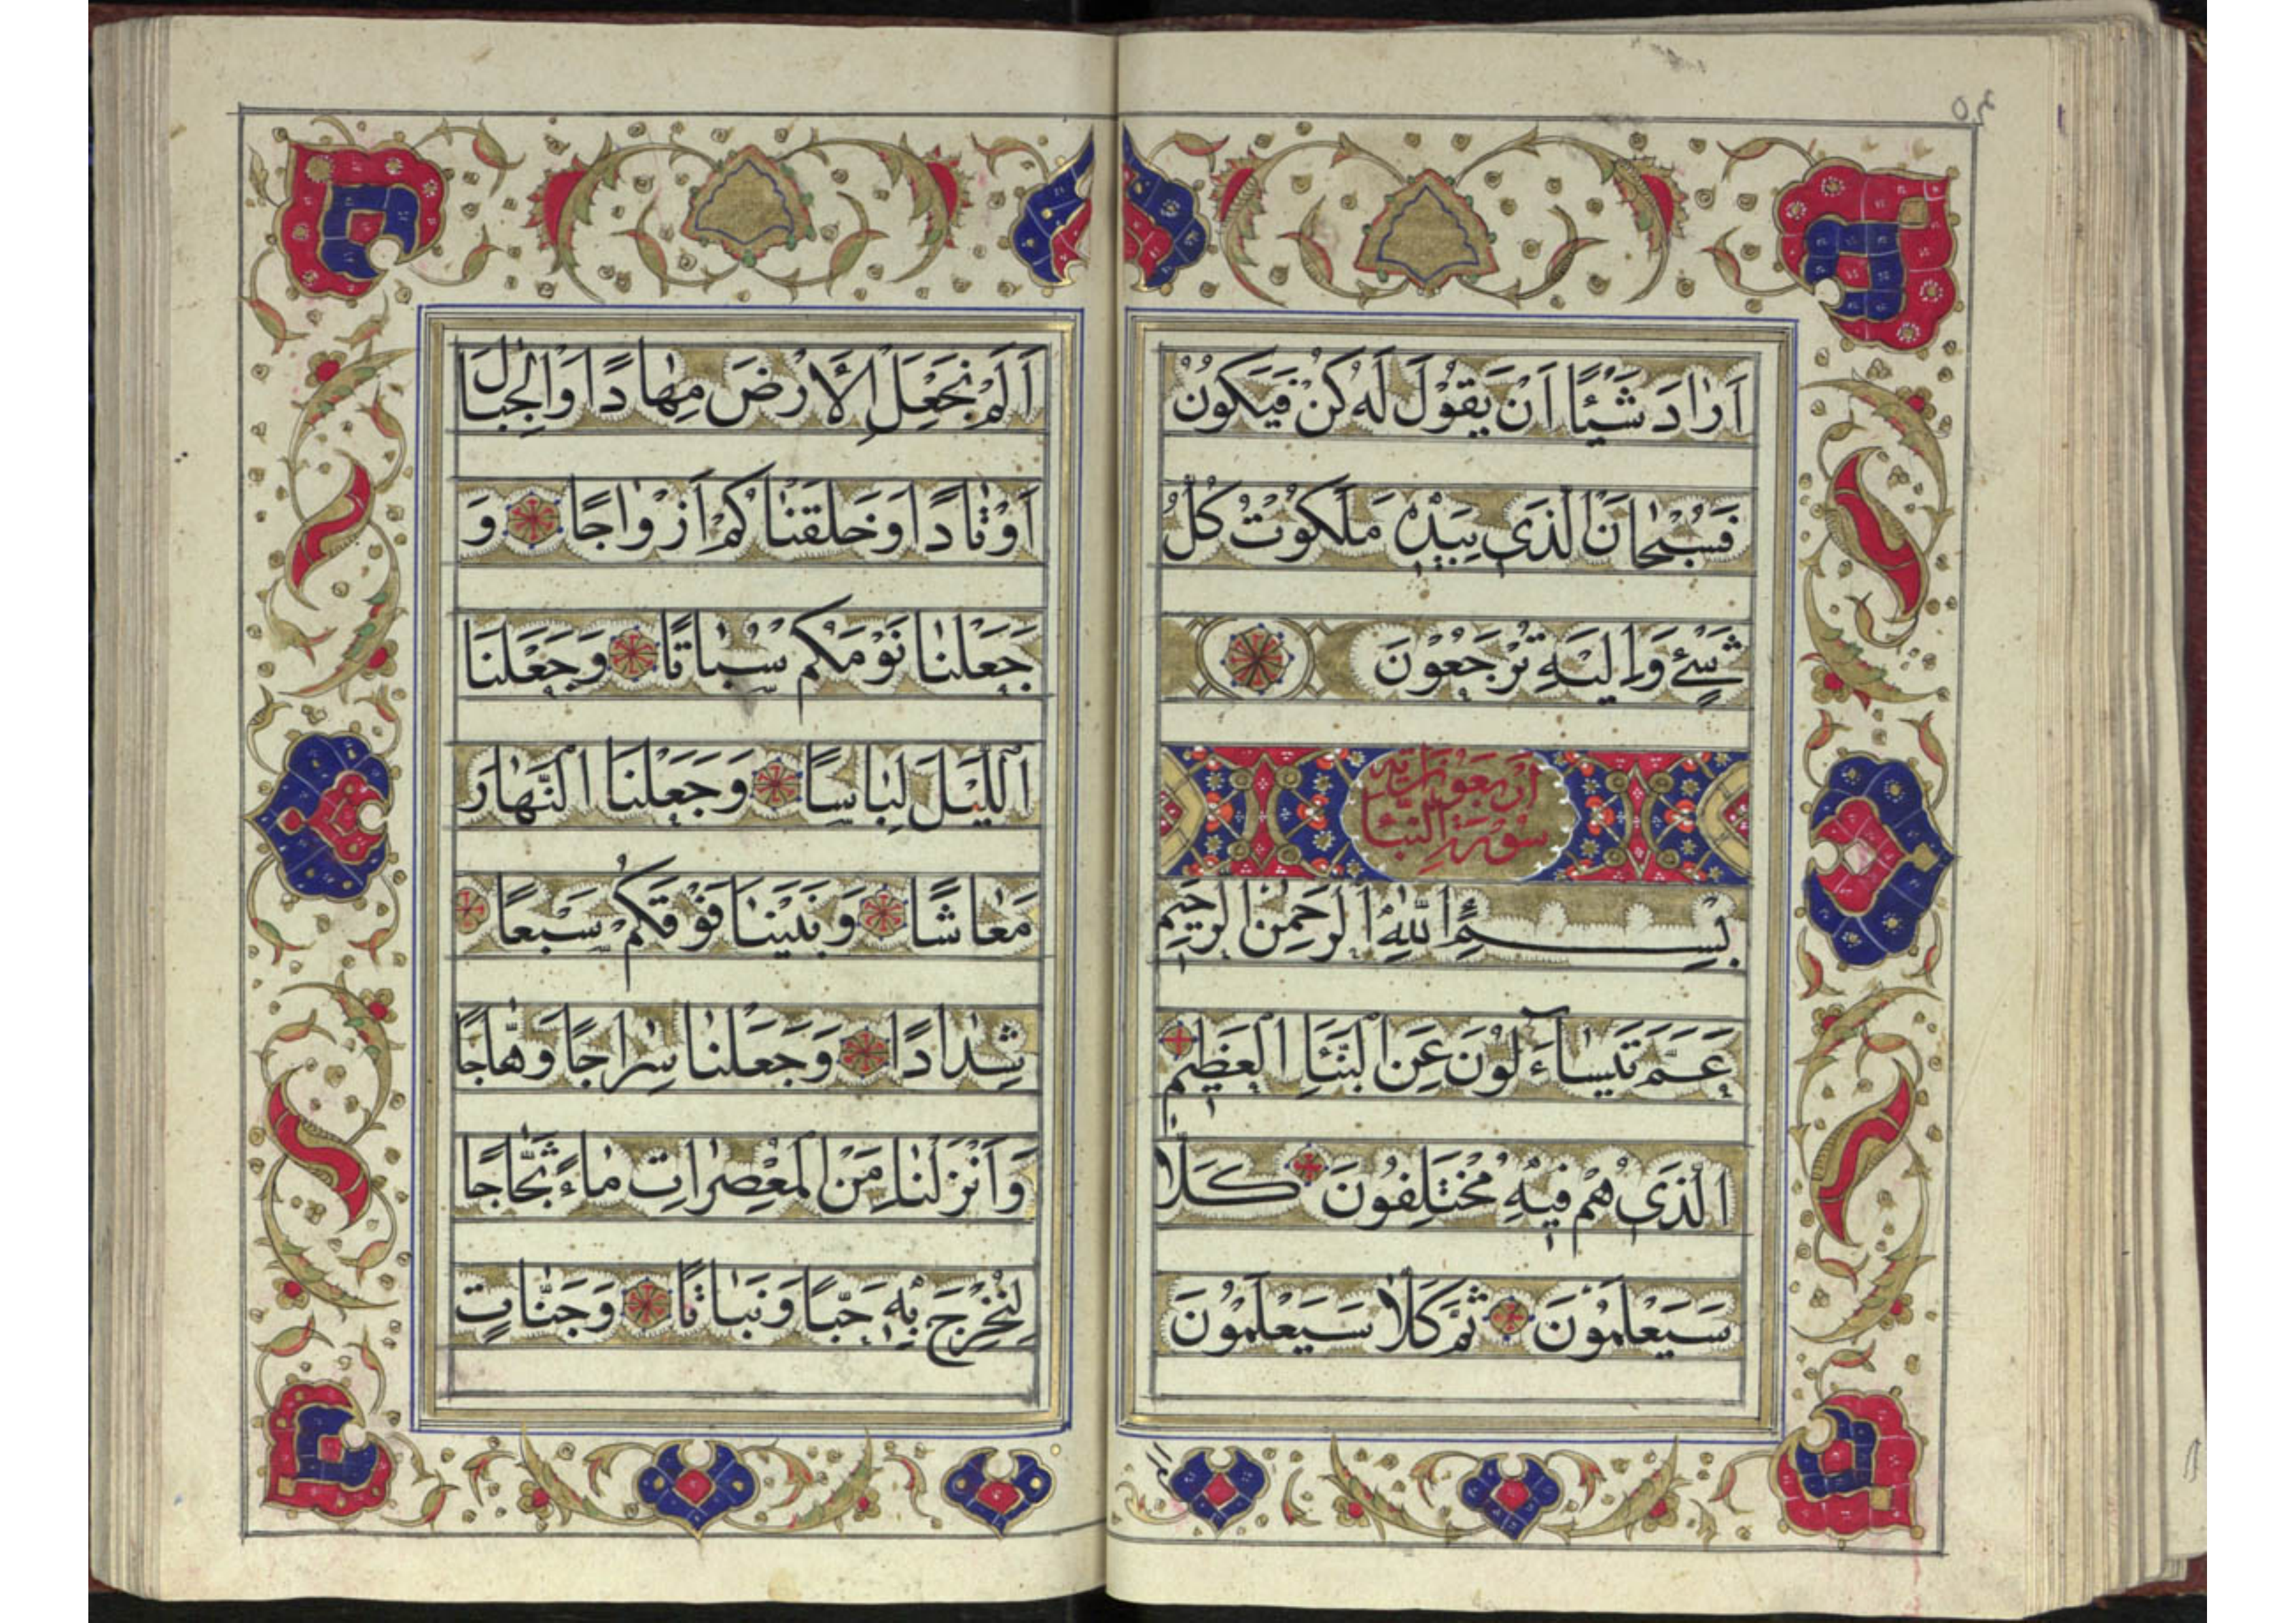 اَرٰادَ شَيْئًا اَنْ يَقُولَ لَهُ كُنْ فَيَكُونُ
فَسُبْحٰانَ الَّذَى بِيَدِهٖ مَلَكُوتُ كُلِّ
شَيْءٍ وَاِلَيْهِ تُرْجَعُوْنَ
اربعون اية
سورة النبأ
بِسْمِ اللّٰهِ الرَّحْمٰنِ الرَّحِيمِ
عَمَّ يَتَسٰاءَلُونَ عَنِ النَّبَإِ الْعَظِيمِ
الَّذَى هُمْ فِيهِ مُخْتَلِفُونَ كَلَّا
سَيَعْلَمُوْنَ ثُمَّ كَلَّا سَيَعْلَمُوْنَ
اَلَمْ نَجْعَلِ الْاَرْضَ مِهٰادًا وَالْجِبٰالَ
اَوْتٰادًا وَخَلَقْنٰاكُمْ اَزْوٰاجًا وَ
جَعَلْنٰا نَوْمَكُمْ سُبٰاتًا وَجَعَلْنَا
اللَّيْلَ لِبٰاسًا وَجَعَلْنَا النَّهٰارَ
مَعٰاشًا وَبَنَيْنٰا فَوْقَكُمْ سَبْعًا
شِدٰادًا وَجَعَلْنٰا سِرٰاجًا وَهّٰاجًا
وَاَنْزَلْنٰا مِنَ الْمُعْصِرٰاتِ مٰاءً ثَجّٰاجًا
لِنُخْرِجَ بِهٖ حَبًّا وَنَبٰاتًا وَجَنّٰاتٍ